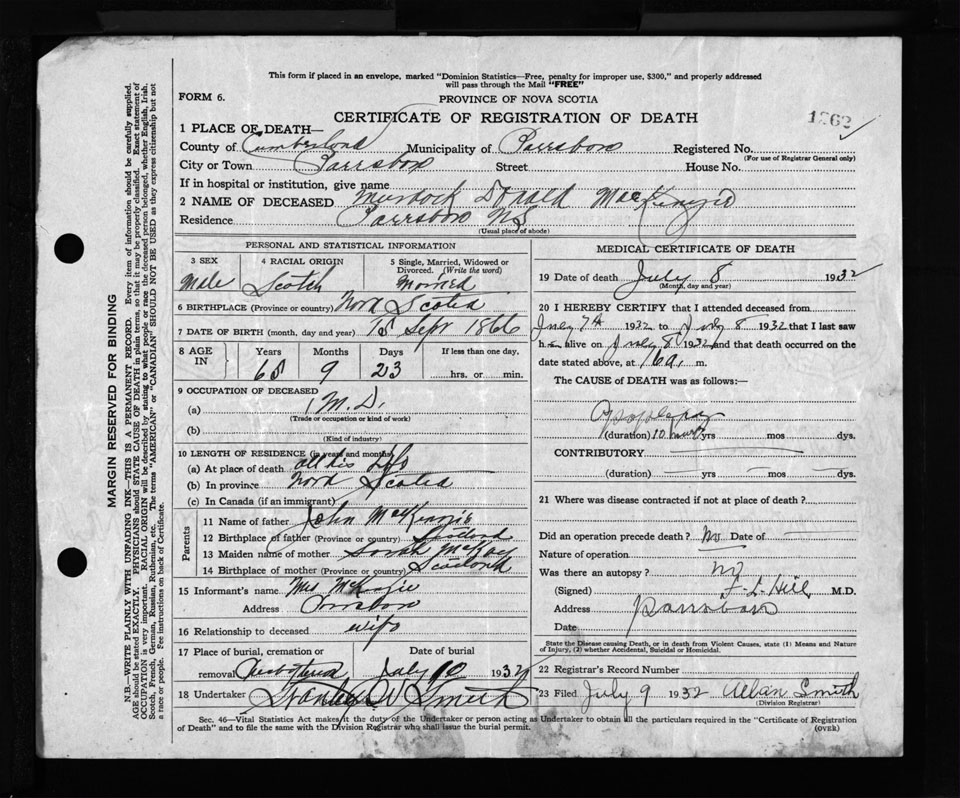 This form if placed in an envelope, marked "Dominion Statistics—Free, penalty for improper use, $300," and properly addressed
will pass through the Mail "FREE"
FORM 6.
PROVINCE OF NOVA SCOTIA
CERTIFICATE OF REGISTRATION OF DEATH
1 PLACE OF DEATH—
County of Cumberland Municipality of Parrsboro Registered No.
(For use of Registrar General only)
City or Town Parrsboro Street House No.
If in hospital or institution, give name
2 NAME OF DECEASED Murdock Donald MacKenzie
Residence Parrsboro NS
(Usual place of abode)
PERSONAL AND STATISTICAL INFORMATION
3 SEX 4 RACIAL ORIGIN 5 Single, Married, Widowed or
Divorced. (Write the word)
Male Scotch Married
6 BIRTHPLACE (Province or country) Nova Scotia
7 DATE OF BIRTH (month, day and year) 15 Sept 1866
8 AGE IN Years Months Days If less than one day.
65 9 23 hrs. or min.
9 OCCUPATION OF DECEASED
(a) M.D.
(Trade or occupation or kind of work)
(b)
(Kind of industry)
10 LENGTH OF RESIDENCE (in years and months)
(a) At place of death all his life
(b) In province Nova Scotia
(c) In Canada (if an immigrant)
Parents
11 Name of father John McKenzie
12 Birthplace of father (Province or country) Scotland
13 Maiden name of mother Sarah McKay
14 Birthplace of mother (Province or country) Scotland
15 Informant's name Mrs McKenzie
Address Parrsboro
16 Relationship to deceased wife
17 Place of burial, cremation or Date of burial
removal July 10 1932
18 Undertaker Stanley W Smith
MEDICAL CERTIFICATE OF DEATH
19 Date of death July 8 1932
(Month, day and year)
20 I HEREBY CERTIFY that I attended deceased from
July 7th 1932 to July 8 1932 that I last saw
h alive on July 8 1932, and that death occurred on the
date stated above, at m.
The CAUSE OF DEATH was as follows:—
Apoplexy
(duration) 10 hours yrs mos dys.
CONTRIBUTORY
(duration) yrs — mos — dys.
21 Where was disease contracted if not at place of death?
Did an operation precede death? No Date of
Nature of operation
Was there an autopsy? no
(Signed) F. L. Hill M.D.
Address Parrsboro
Date
State the Disease causing Death, or in death from Violent Causes, state (1) Means and Nature
of Injury, (2) whether Accidental, Suicidal or Homicidal.
22 Registrar's Record Number
23 Filed July 9 1932 Allan Smith
(Division Registrar)
Sec. 46—Vital Statistics Act makes it the duty of the Undertaker or person acting as Undertaker to obtain all the particulars required in the "Certificate of Registration
of Death" and to file the same with the Division Registrar who shall issue the burial permit.
(OVER)
MARGIN RESERVED FOR BINDING
N.B.—WRITE PLAINLY WITH UNFADING INK—THIS IS A PERMANENT RECORD. Every item of information should be carefully supplied.
AGE should be stated EXACTLY. PHYSICIANS should STATE CAUSE OF DEATH in plain terms, so that it may be properly classified. Exact statement of
OCCUPATION is very important. RACIAL ORIGIN will be described by stating to what people or race the deceased person belonged, whether English, Irish,
Scotch, French, German, Russian, Ruthenian, etc. The terms "AMERICAN" or "CANADIAN" SHOULD NOT BE USED as they express citizenship but not
a race or people. See instructions on back of Certificate.